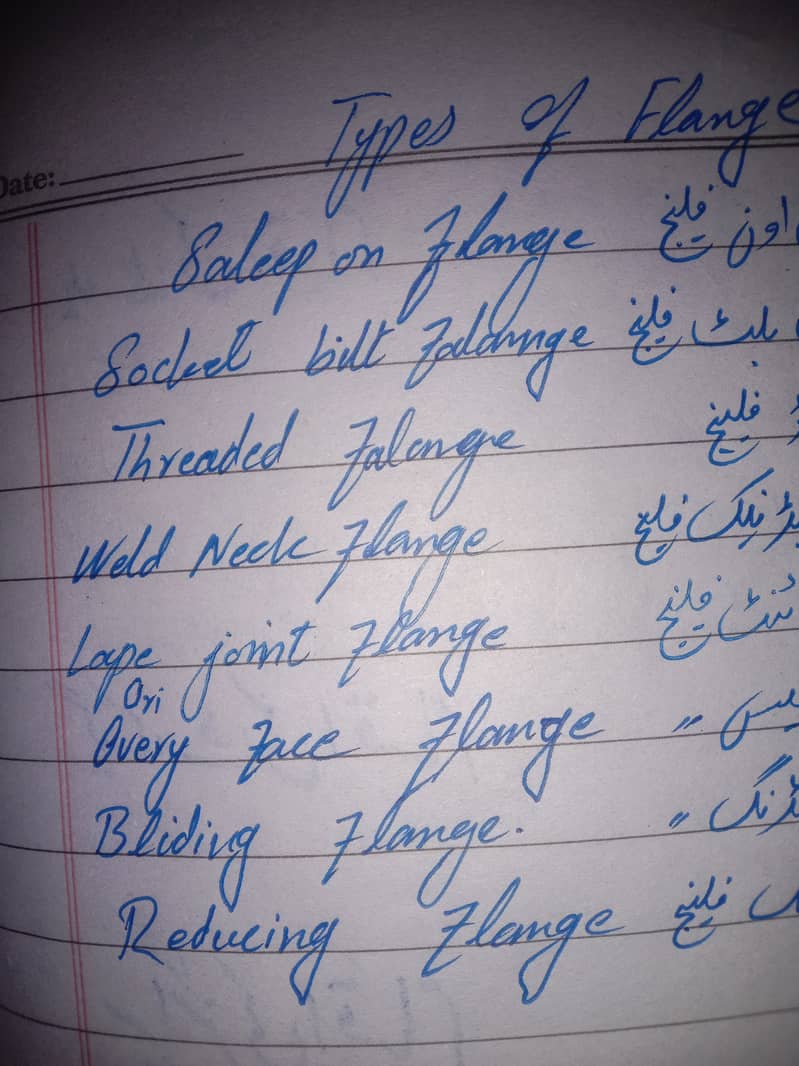 Types of Flange
Date:
Saleep on Flange اون فلینج
Socket bilt Falannge بلٹ فلینج
Threaded Falange فلینج
Weld Neck Flange نیک فلینج
Lape joint Flange فلینج
Ori
Overy Face Flange 〃
Bliding Flange. 〃
Reducing Flange فلینج